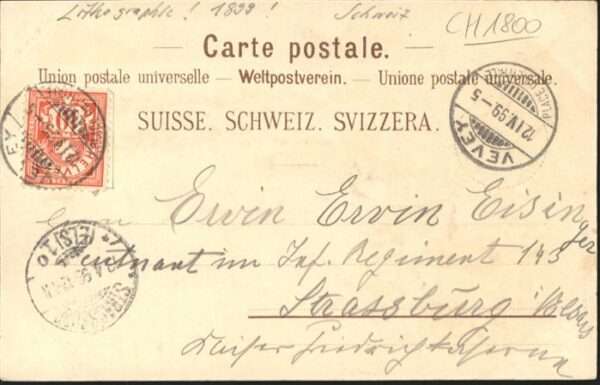 Lithographie! 1899! Schweiz
CH1800
Carte postale.
Union postale universelle. – Weltpostverein. – Unione postale universale.
SUISSE. SCHWEIZ. SVIZZERA.
VEVEY
12 IV 99–5
PLACE
Erwin Ervin Eisinger
Leutnant im Inf. Regiment 143
Strassburg i/Elsass
Kaiser Friedrichkaserne
(ELS) 1 o